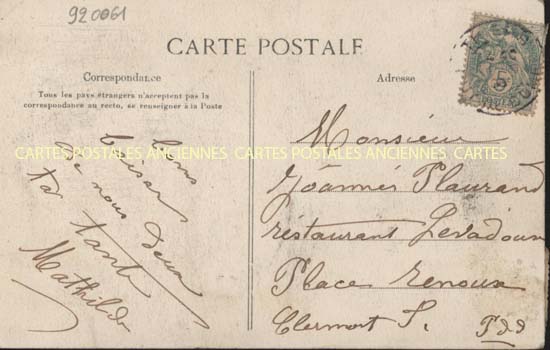 920061
CARTE POSTALE
Correspondance
Tous les pays étrangers n'acceptent pas la
correspondance au recto, se renseigner à la Poste
Adresse
CARTES POSTALES ANCIENNES CARTES POSTALES ANCIENNES CARTES
Bons
baisers
de nous deux
ta tante
Mathilde
Monsieur
Joannès Plaurand
restaurant Levadoux
Place Renoux
Clermont F. P d d